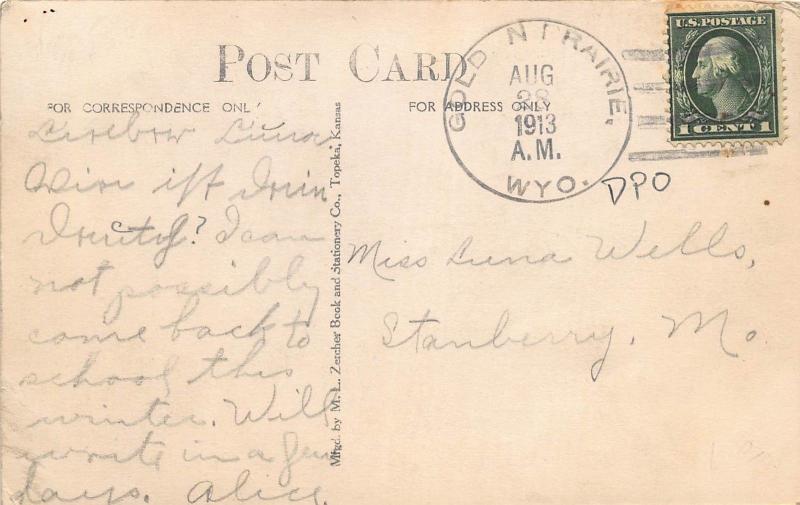 POST CARD
FOR CORRESPONDENCE ONLY
FOR ADDRESS ONLY
GOLD N PRAIRIE,
AUG
28
1913
A.M.
WYO.
U.S. POSTAGE
1 CENT 1
DPO
Luna
ist
? I can
not possibly
come back to
school this
winter. Will
write in a few
days. Alice.
Mfgd. by M. L. Zercher Book and Stationery Co., Topeka, Kansas
Miss Luna Wells,
Stanberry, Mo